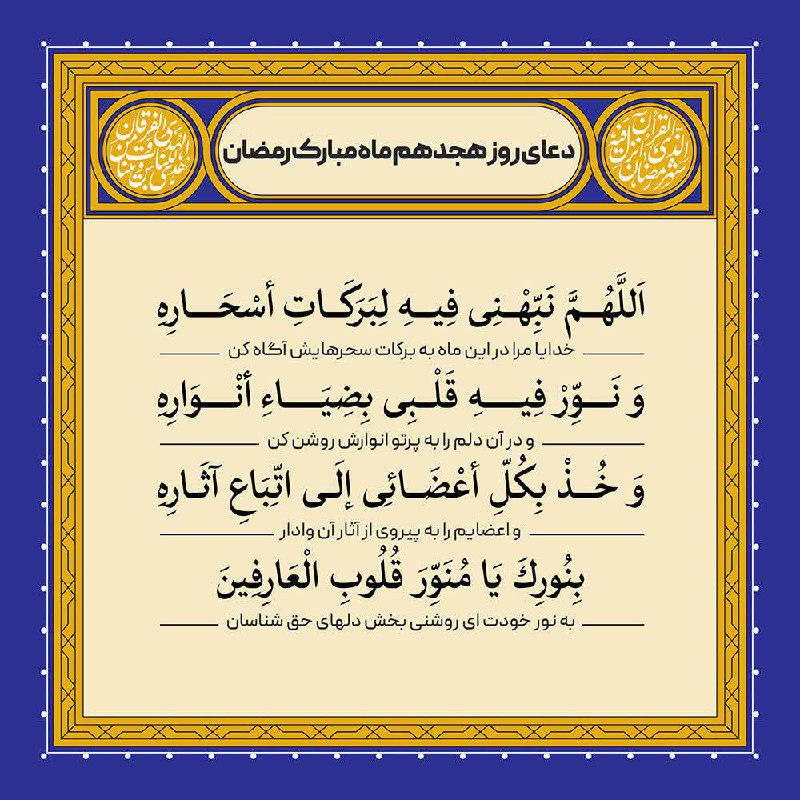 دعای روز هجدهم ماه مبارک رمضان
شهر رمضان الذی انزل فیه القرآن
هدی للناس و بینات من الهدی و الفرقان
اَللَّهُمَّ نَبِّهْنِی فِیهِ لِبَرَکَاتِ أَسْحَارِهِ
خدایا مرا در این ماه به برکات سحرهایش آگاه کن
وَ نَوِّرْ فِیهِ قَلْبِی بِضِیَاءِ أَنْوَارِهِ
و در آن دلم را به پرتو انوارش روشن کن
وَ خُذْ بِکُلِّ أَعْضَائِی إِلَی اتِّبَاعِ آثَارِهِ
و اعضایم را به پیروی از آثار آن وادار
بِنُورِكَ یَا مُنَوِّرَ قُلُوبِ الْعَارِفِینَ
به نور خودت ای روشنی بخش دلهای حق شناسان